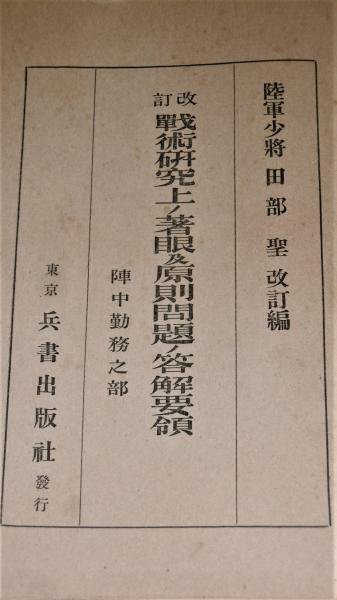 陸軍少將 田部 聖 改訂編
改訂
戰術研究上ノ著眼及原則問題ノ答解要領
陣中勤務之部
東京 兵書出版社 發行